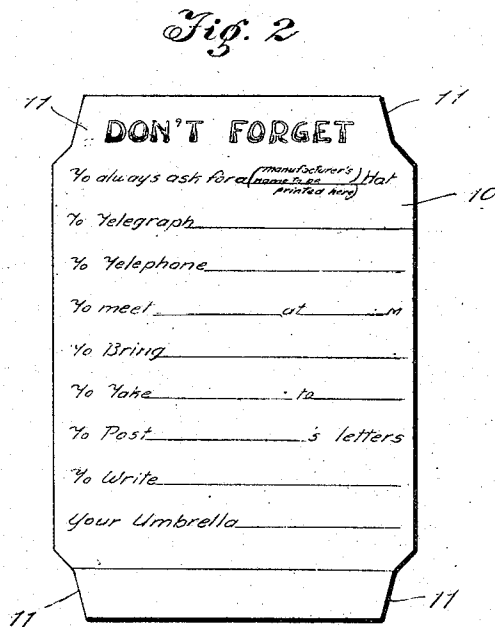 Fig. 2
11
11
DON'T FORGET
To always ask for a (manufacturer's name to be printed here) Hat
10
To Telegraph
To Telephone
To meet at .m
To Bring
To Take to
To Post 's letters
To Write
Your Umbrella
11
11